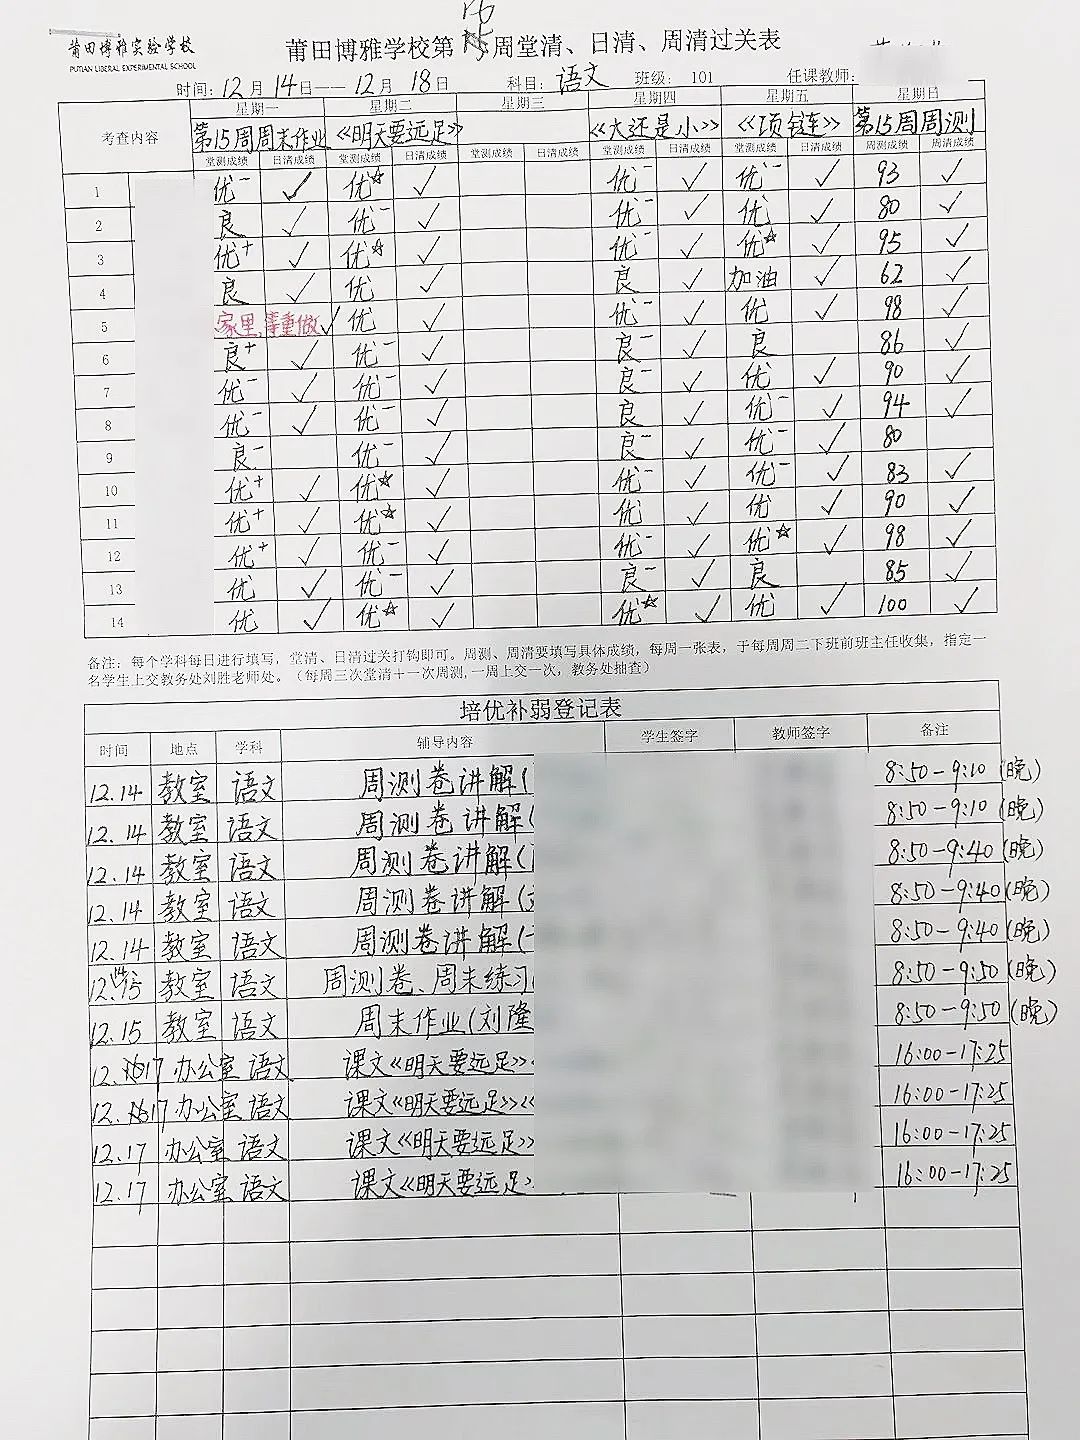 莆田博雅实验学校
PUTIAN LIBERAL EXPERIMENTAL SCHOOL
莆田博雅学校第16周堂清、日清、周清过关表
时间：12月14日——12月18日 科目：语文 班级：101 任课教师：
考查内容 星期一 星期二 星期三 星期四 星期五 星期日
第15周周末作业 《明天要远足》 《大还是小》 《项链》 第15周周测
堂测成绩 日清成绩 堂测成绩 日清成绩 堂测成绩 日清成绩 堂测成绩 日清成绩 堂测成绩 日清成绩 周测成绩 周清成绩
1 优- ✓ 优☆ ✓ 优- ✓ 优- ✓ 93 ✓
2 良 ✓ 优- ✓ 优- ✓ 优 ✓ 80 ✓
3 优+ ✓ 优☆ ✓ 优- ✓ 优☆ ✓ 95 ✓
4 良 ✓ 优 ✓ 良 ✓ 加油 ✓ 62 ✓
5 家里,等重做 ✓ 优 ✓ 优- ✓ 优 ✓ 98 ✓
6 良+ ✓ 优- ✓ 良- ✓ 良 86 ✓
7 优- ✓ 优- ✓ 良- ✓ 优 ✓ 90 ✓
8 优- ✓ 优- ✓ 良 ✓ 优- ✓ 94 ✓
9 良- 优- ✓ 良- ✓ 优- ✓ 80
10 优+ ✓ 优☆ ✓ 优- ✓ 优- ✓ 83 ✓
11 优+ ✓ 优☆ ✓ 优 ✓ 优 ✓ 90 ✓
12 优+ ✓ 优- ✓ 优- ✓ 优☆ ✓ 98 ✓
13 优 ✓ 优- ✓ 良- ✓ 良 85 ✓
14 优 ✓ 优☆ ✓ 优☆ ✓ 优 ✓ 100 ✓
备注：每个学科每日进行填写，堂清、日清过关打钩即可。周测、周清要填写具体成绩，每周一张表，于每周周二下班前班主任收集，指定一
名学生上交教务处刘胜老师处。（每周三次堂清＋一次周测,一周上交一次，教务处抽查）
培优补弱登记表
时间 地点 学科 辅导内容 学生签字 教师签字 备注
12.14 教室 语文 周测卷讲解( 8:50-9:10(晚)
12.14 教室 语文 周测卷讲解( 8:50-9:10(晚)
12.14 教室 语文 周测卷讲解( 8:50-9:40(晚)
12.14 教室 语文 周测卷讲解( 8:50-9:40(晚)
12.14 教室 语文 周测卷讲解( 8:50-9:40(晚)
12.15 教室 语文 周测卷、周末练习 8:50-9:50(晚)
12.15 教室 语文 周末作业(刘隆 8:50-9:50(晚)
12.17 办公室 语文 课文《明天要远足》 16:00-17:25
12.17 办公室 语文 课文《明天要远足》《 16:00-17:25
12.17 办公室 语文 课文《明天要远足》 16:00-17:25
12.17 办公室 语文 课文《明天要远足》 16:00-17:25